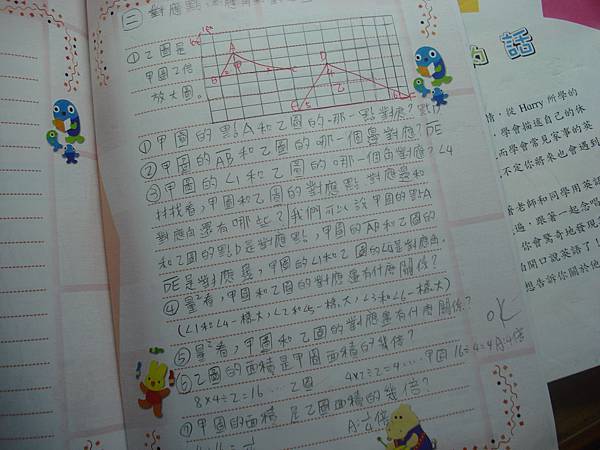 ㊁ 對應點、對應角
①乙圖是
甲圖2倍
放大圖。
A
B
甲
D
乙
①甲圖的點A和乙圖的哪一點對應?點D
②甲圖的AB和乙圖的哪一個邊對應?DE
③甲圖的∠1和乙圖的哪一個角對應?∠4
找找看,甲圖和乙圖的對應點、對應邊和
對應角還有哪些?我們可以說甲圖的點A
和乙圖的點D是對應點,甲圖的AB和乙圖的
DE是對應邊,甲圖的∠1和乙圖的∠4是對應角。
④量量看,甲圖和乙圖的對應角有什麼關係?
(∠1和∠4一樣大,∠2和∠5一樣大,∠3和∠6一樣大)
⑤量量看,甲圖和乙圖的對應邊有什麼關係?
⑥乙圖的面積是甲圖面積的幾倍?
8×4÷2=16……乙圖 4×2÷2=4……甲圖 16÷4=4 A:4倍
⑦甲圖的面積是乙圖面積的幾倍?
ok
話
情,從 Harry 所學的
學會描述自己的休
而學會常見家事的英
不定你將來也會遇到
著老師和同學用英語
遍,跟著一起念唱
你會驚奇地發現
由開口說英語了!
想告訴你關於他